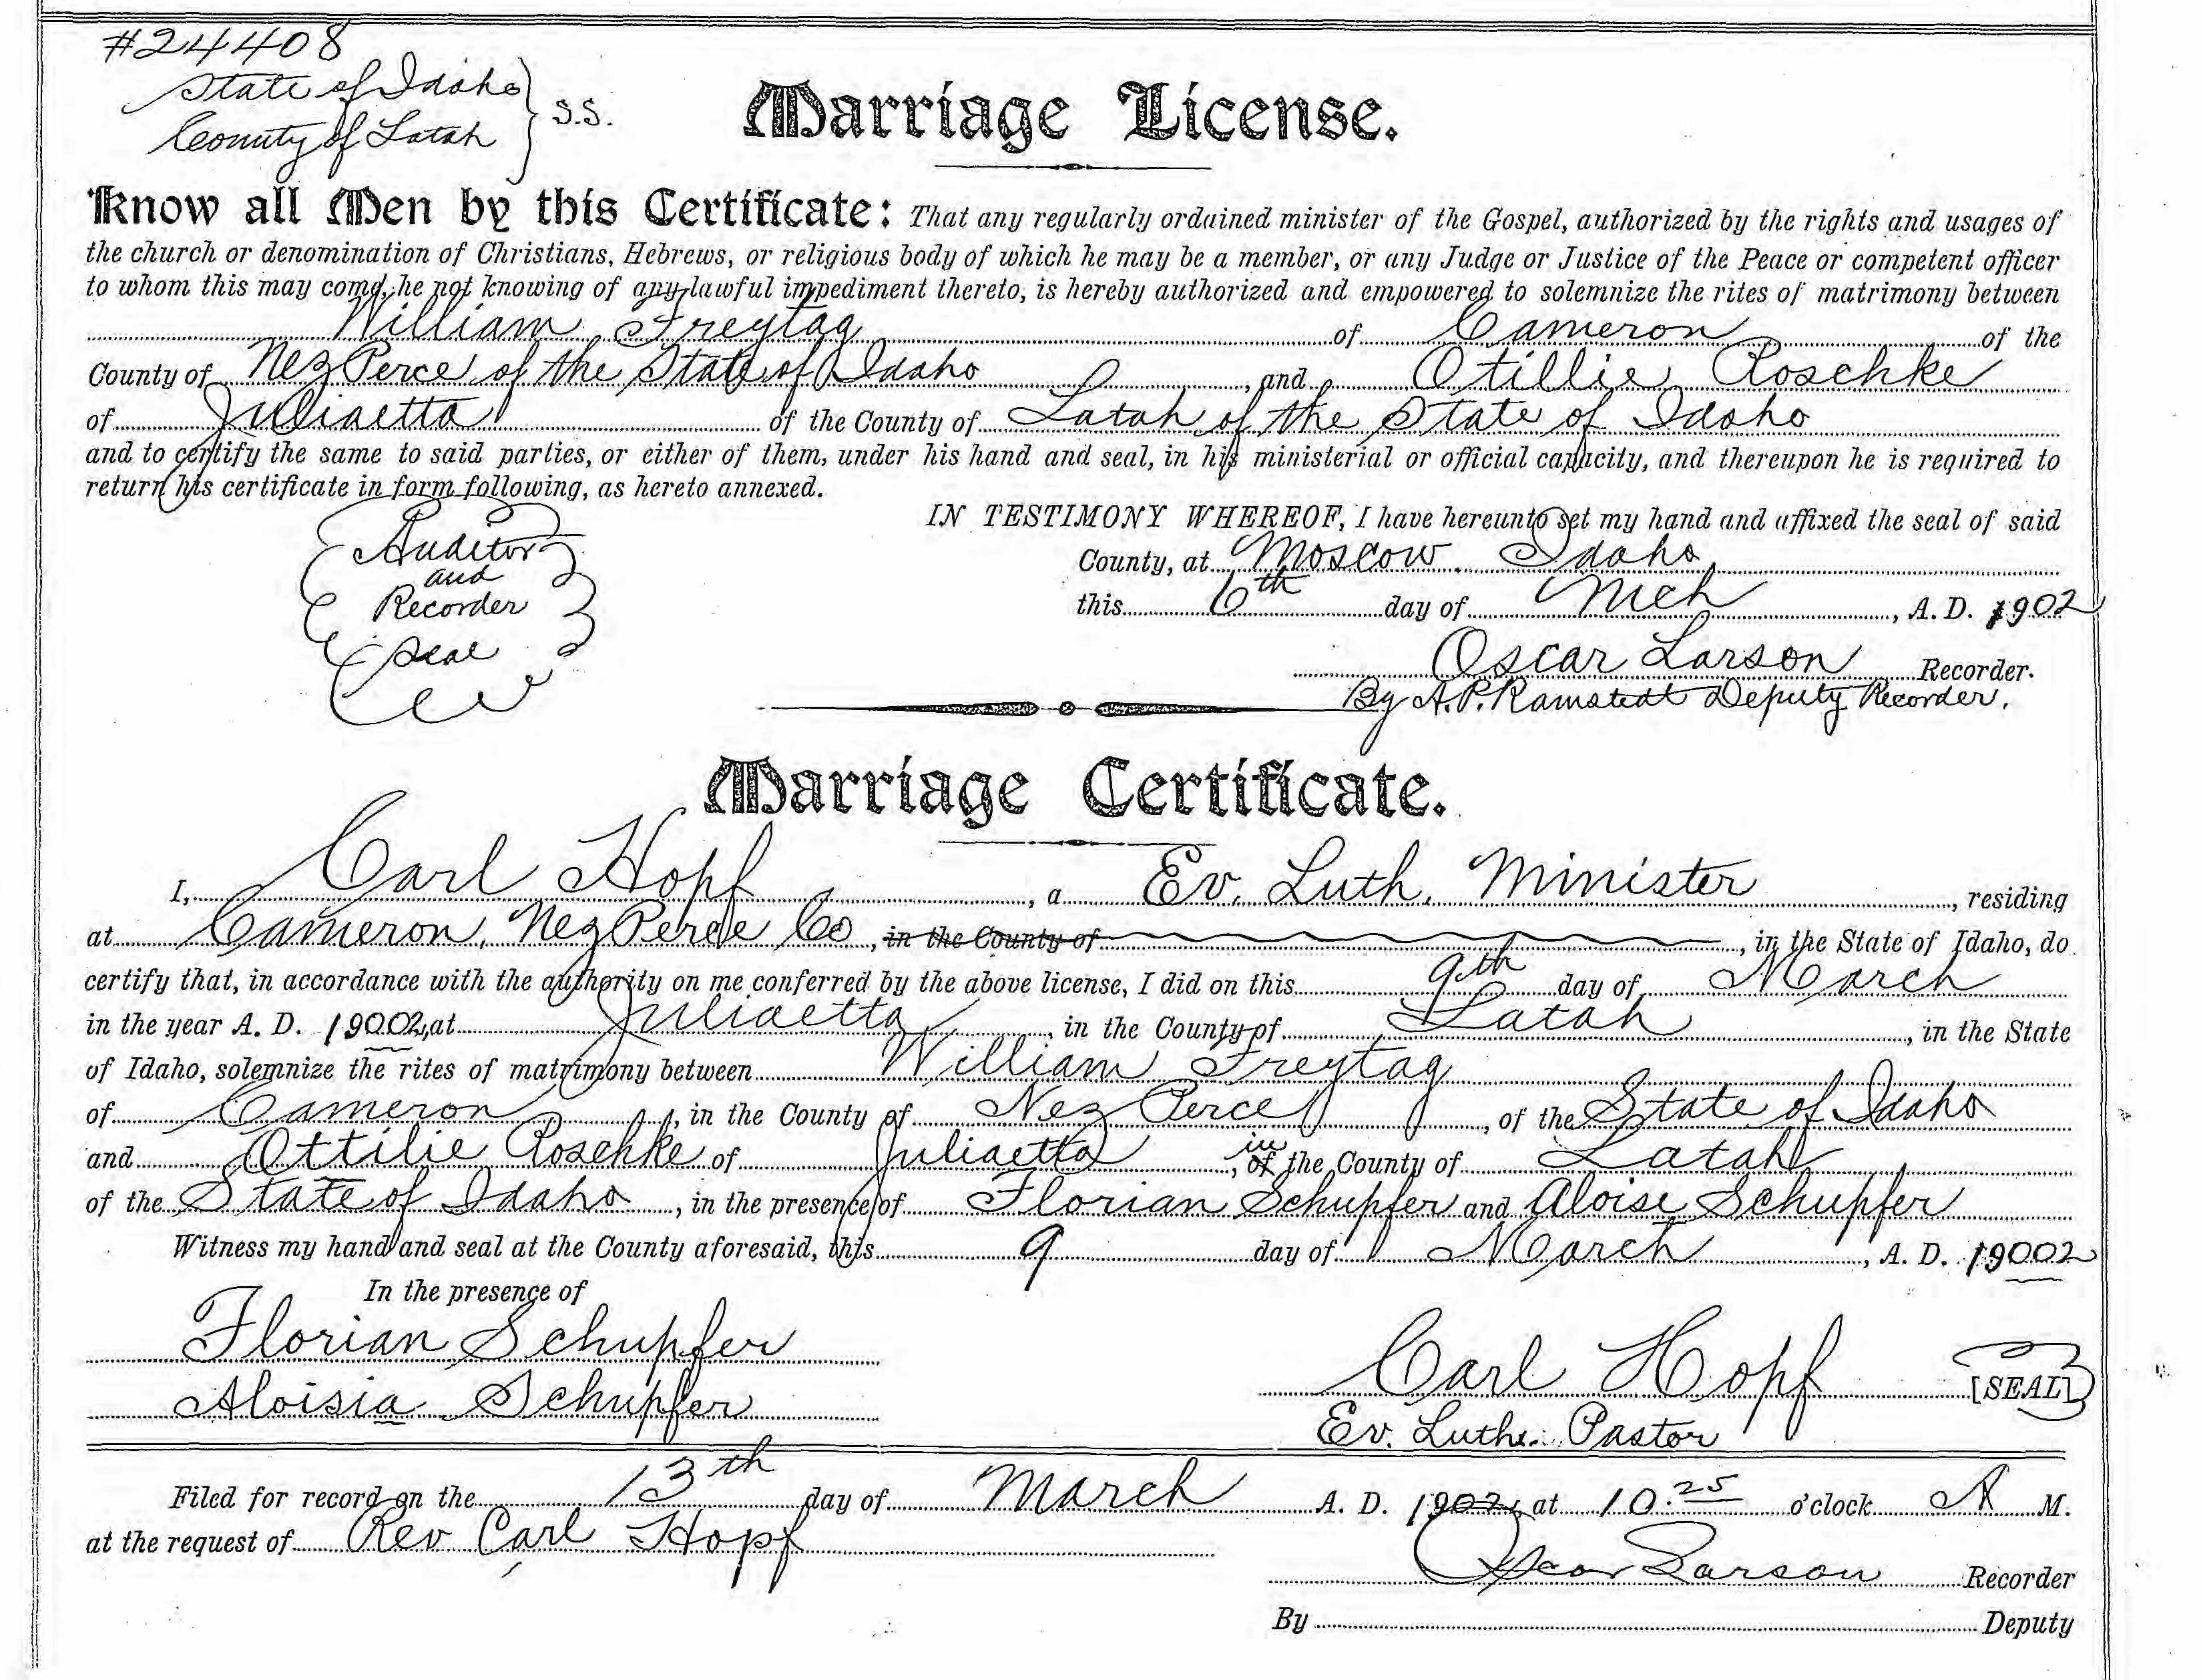 #24408
State of Idaho } S.S.
County of Latah
Marriage License.
Know all Men by this Certificate: That any regularly ordained minister of the Gospel, authorized by the rights and usages of
the church or denomination of Christians, Hebrews, or religious body of which he may be a member, or any Judge or Justice of the Peace or competent officer
to whom this may come, he not knowing of any lawful impediment thereto, is hereby authorized and empowered to solemnize the rites of matrimony between
William Freytag of Cameron of the
County of Nez Perce of the State of Idaho, and Otillie Roschke
of Juliaetta of the County of Latah of the State of Idaho
and to certify the same to said parties, or either of them, under his hand and seal, in his ministerial or official capacity, and thereupon he is required to
return his certificate in form following, as hereto annexed.
IN TESTIMONY WHEREOF, I have hereunto set my hand and affixed the seal of said
Auditor
and
Recorder
Seal
County, at Moscow. Idaho
this 6th day of Mch, A. D. 1902
Oscar Larson Recorder.
By A.P. Ramstedt Deputy Recorder.
Marriage Certificate.
I, Carl Hopf, a Ev. Luth. Minister, residing
at Cameron, Nez Perce Co, in the County of, in the State of Idaho, do
certify that, in accordance with the authority on me conferred by the above license, I did on this 9th day of March
in the year A. D. 19002, at Juliaetta, in the County of Latah, in the State
of Idaho, solemnize the rites of matrimony between William Freytag
of Cameron, in the County of Nez Perce, of the State of Idaho
and Ottilie Roschke of Juliaetta, in of the County of Latah
of the State of Idaho, in the presence of Florian Schupfer and Aloise Schupfer
Witness my hand and seal at the County aforesaid, this 9 day of March, A. D. 19002
In the presence of
Florian Schupfer
Aloisia Schupfer
Carl Hopf [SEAL]
Ev. Luth. Pastor
Filed for record on the 13th day of March A. D. 1902, at 10:25 o'clock A M.
at the request of Rev Carl Hopf
Oscar Larson Recorder
By Deputy